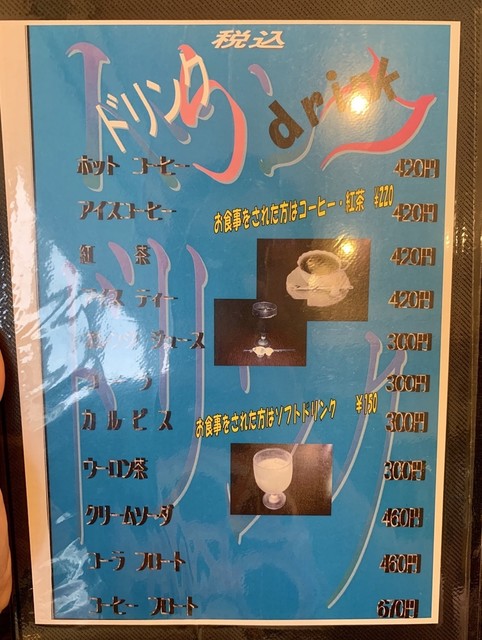 税込
ドリンク drink
ホット コーヒー 420円
お食事をされた方はコーヒー・紅茶 ¥220
アイスコーヒー 420円
紅 茶 420円
アイス ティー 420円
オレンジ ジュース 300円
コーラ 300円
お食事をされた方はソフトドリンク ¥150
カルピス 300円
ウーロン茶 300円
クリームソーダ 460円
コーラ フロート 460円
コーヒー フロート 670円